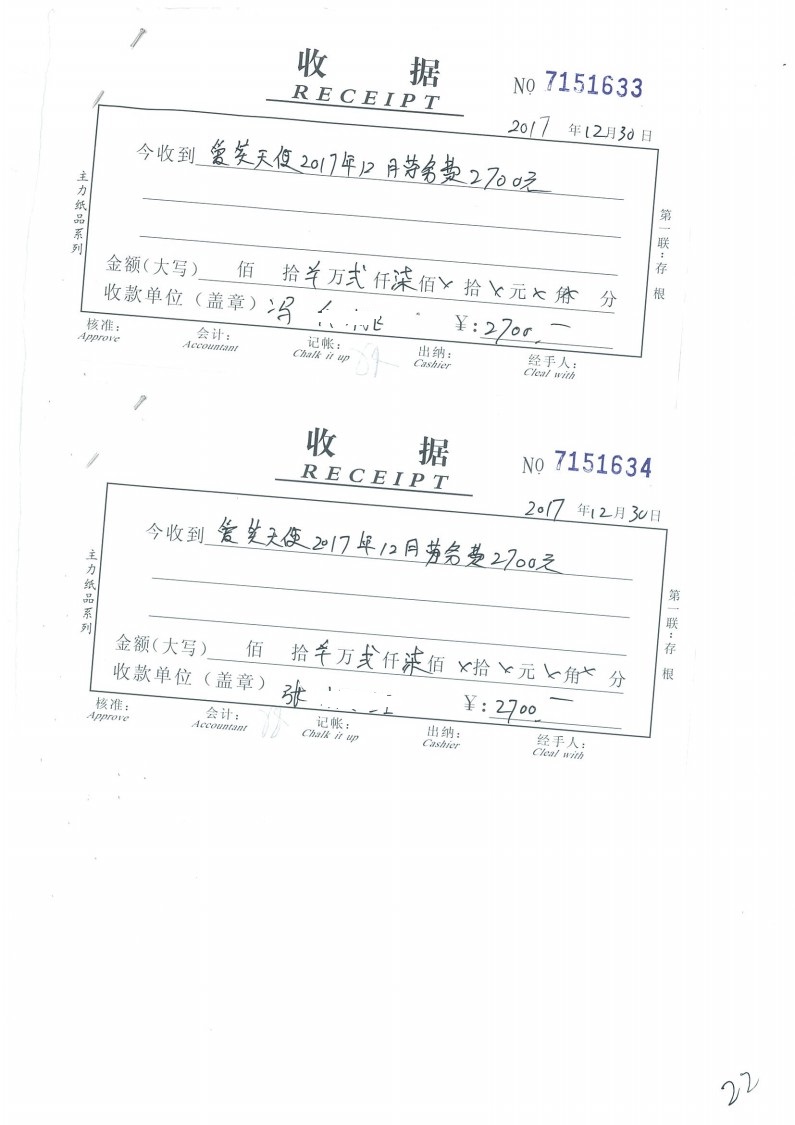 收 据
RECEIPT
NO 7151633
2017 年12月30日
今收到 爱笑天使2017年12月劳务费2700元
主力纸品系列
第一联:存根
金额(大写) 佰 拾 万 贰 仟 柒 佰 × 拾 × 元 × 角 分
收款单位(盖章) 冯 ¥: 2700.一
核准: 会计: 记帐: 出纳: 经手人:
Approve Accountant Chalk it up Cashier Cleal with
收 据
RECEIPT
NO 7151634
2017 年12月30日
今收到 爱笑天使2017年12月劳务费2700元
主力纸品系列
第一联:存根
金额(大写) 佰 拾 万 贰 仟 柒 佰 × 拾 × 元 × 角 × 分
收款单位(盖章) 张 ¥: 2700.一
核准: 会计: 记帐: 出纳: 经手人:
Approve Accountant Chalk it up Cashier Cleal with
22